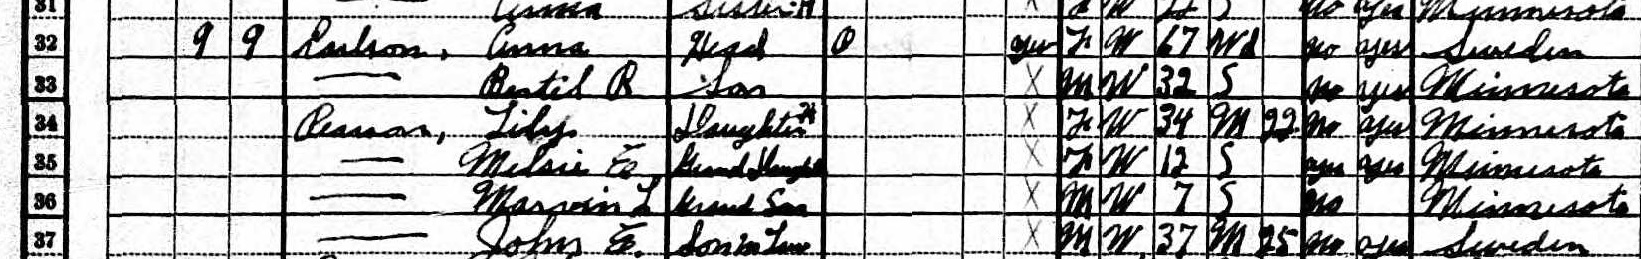 31 Anna Sister-H X F W 22 S no yes Minnesota
32 9 9 Carlson, Anna Head O yes F W 67 Wd no yes Sweden
33 — Bertil R Son X M W 32 S no yes Minnesota
34 Pearson, Lily Daughter H X F W 34 M 22 no yes Minnesota
35 — E Grand Daughter X F W 12 S yes yes Minnesota
36 — Marvin L Grand Son X M W 7 S no Minnesota
37 — John E. Son in Law X M W 37 M 25 no yes Sweden